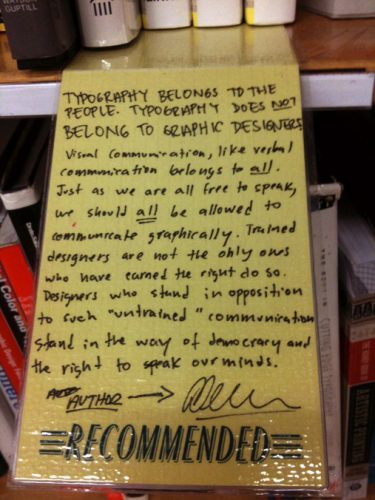 GUPTILL
TYPOGRAPHY BELONGS TO THE
PEOPLE. TYPOGRAPHY DOES NOT
BELONG TO GRAPHIC DESIGNERS!
Visual communication, like verbal
communication belongs to all.
Just as we are all free to speak,
we should all be allowed to
communicate graphically. Trained
designers are not the only ones
who have earned the right do so.
Designers who stand in opposition
to such "untrained" communication
stand in the way of democracy and
the right to speak our minds.
AUTHOR →
RECOMMENDED
Color and